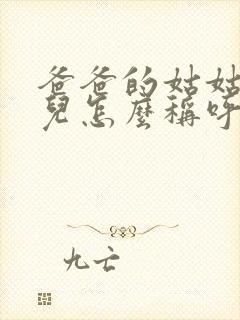 爸爸的姑姑
兒怎麼稱呼
九亡